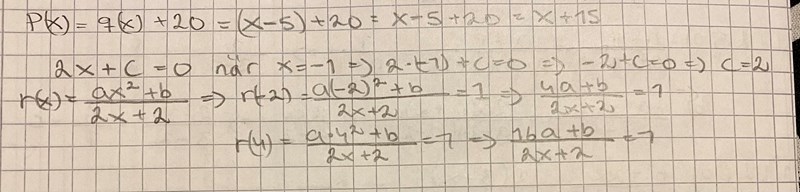 P(x) = q(x) + 20 = (x-5) + 20 = x-5+20 = x+15
2x + C = 0 när x=-1 => 2·(-1) + C=0 => -2+C=0 => C=2
r(x) = (ax²+b)/(2x+2) => r(-2) = (a(-2)²+b)/(2x+2) = 1 => (4a+b)/(2x+2) = 1
r(4) = (a·4²+b)/(2x+2) = 7 => (16a+b)/(2x+2) = 7